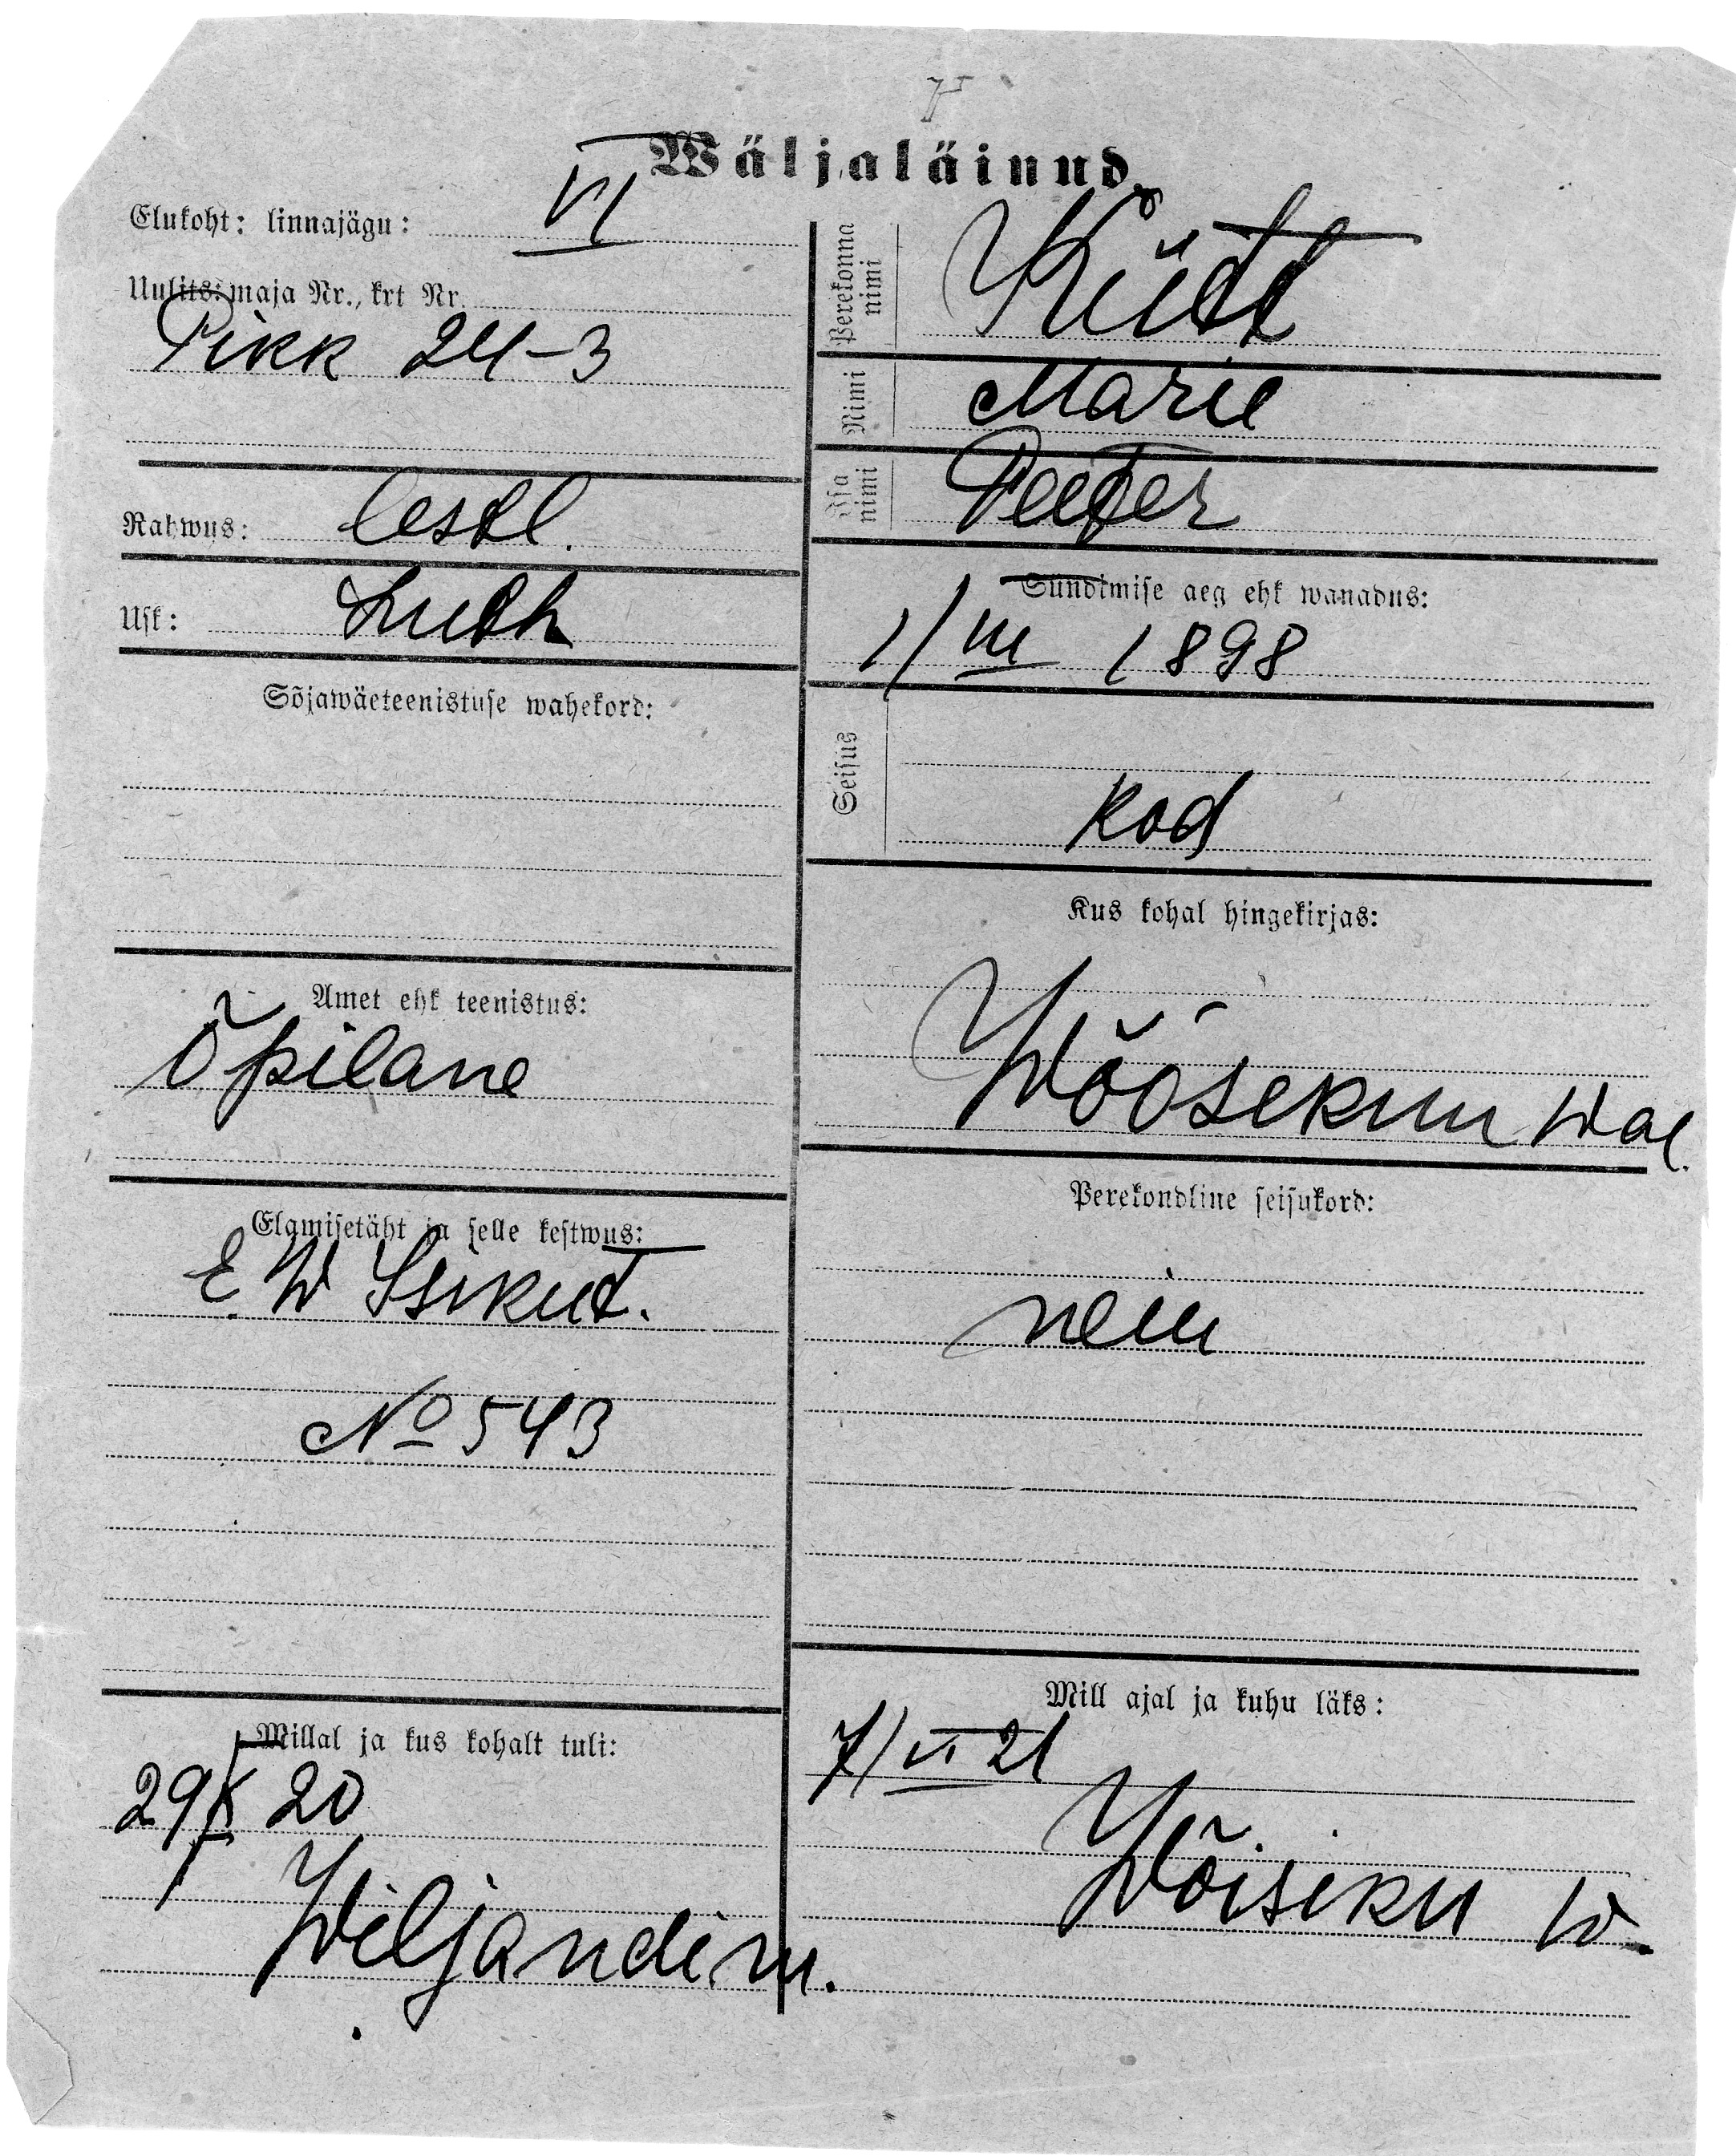 Wäljaläinud.
Elukoht: linnajägu: VI
Uulits: maja Nr., krt Nr.
Pikk 24-3
Rahwus: Eestl.
Usk: Luth
Sõjawäeteenistuse wahekord:
Amet ehk teenistus:
Õpilane
Elamisetäht ja selle kestwus:
E. W Isikut.
№ 543
Millal ja kus kohalt tuli:
29/X 20
Wiljandi m.
Perekonna nimi
Kütt
Nimi
Marie
Isa nimi
Peeter
Sündimise aeg ehk wanadus:
1/III 1898
Seisus
kod
Kus kohal hingekirjas:
Wõõsekuu wal.
Perekondline seisukord:
neiu
Mill ajal ja kuhu läks:
7/VI 21
Wõiseku w.